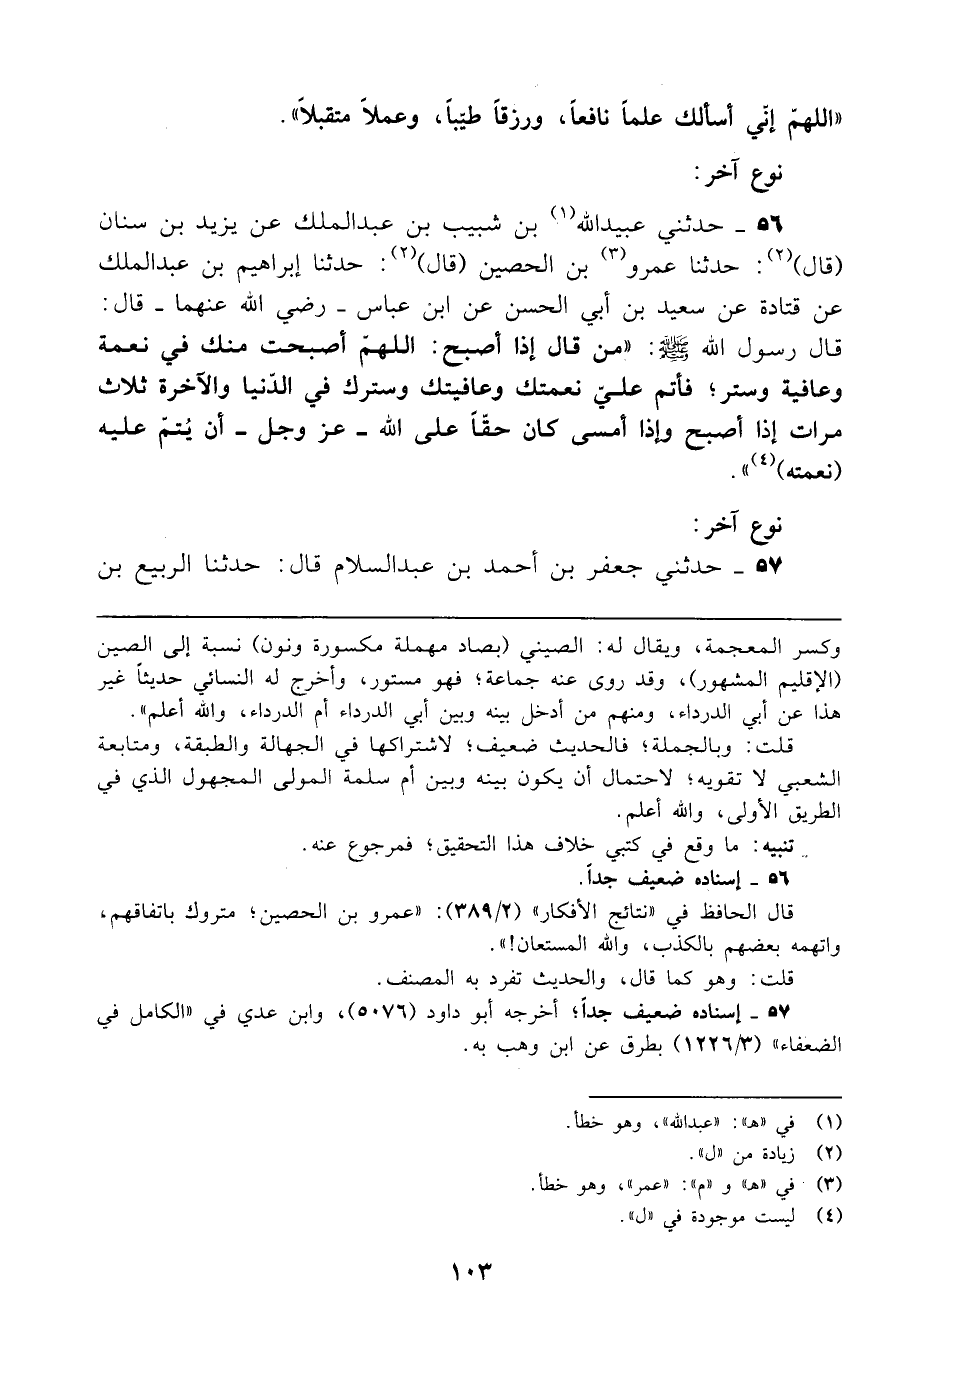 «اللهمّ إنّي أسألك علماً نافعاً، ورزقاً طيّباً، وعملاً متقبلاً».
نوع آخر:
٥٦ ـ حدثني عبيدالله(١) بن شبيب بن عبدالملك عن يزيد بن سنان
(قال)(٢): حدثنا عمرو(٣) بن الحصين (قال)(٢): حدثنا إبراهيم بن عبدالملك
عن قتادة عن سعيد بن أبي الحسن عن ابن عباس ـ رضي الله عنهما ـ قال:
قال رسول الله ﷺ: «من قال إذا أصبح: اللهمّ أصبحت منك في نعمة
وعافية وستر؛ فأتم عليّ نعمتك وعافيتك وسترك في الدّنيا والآخرة ثلاث
مرات إذا أصبح وإذا أمسى كان حقّاً على الله ـ عز وجل ـ أن يُتمّ عليه
(نعمته)(٤)».
نوع آخر:
٥٧ ـ حدثني جعفر بن أحمد بن عبدالسلام قال: حدثنا الربيع بن
وكسر المعجمة، ويقال له: الصيني (بصاد مهملة مكسورة ونون) نسبة إلى الصين
(الإقليم المشهور)، وقد روى عنه جماعة؛ فهو مستور، وأخرج له النسائي حديثاً غير
هذا عن أبي الدرداء، ومنهم من أدخل بينه وبين أبي الدرداء أم الدرداء، والله أعلم».
قلت: وبالجملة؛ فالحديث ضعيف؛ لاشتراكها في الجهالة والطبقة، ومتابعة
الشعبي لا تقويه؛ لاحتمال أن يكون بينه وبين أم سلمة المولى المجهول الذي في
الطريق الأولى، والله أعلم.
تنبيه: ما وقع في كتبي خلاف هذا التحقيق؛ فمرجوع عنه.
٥٦ ـ إسناده ضعيف جداً.
قال الحافظ في «نتائج الأفكار» (٣٨٩/٢): «عمرو بن الحصين؛ متروك باتفاقهم،
واتهمه بعضهم بالكذب، والله المستعان!».
قلت: وهو كما قال، والحديث تفرد به المصنف.
٥٧ ـ إسناده ضعيف جداً؛ أخرجه أبو داود (٥٠٧٦)، وابن عدي في «الكامل في
الضعفاء» (١٢٢٦/٣) بطرق عن ابن وهب به.
(١) في «هـ»: «عبدالله»، وهو خطأ.
(٢) زيادة من «ل».
(٣) في «هـ» و «م»: «عمر»، وهو خطأ.
(٤) ليست موجودة في «ل».
١٠٣